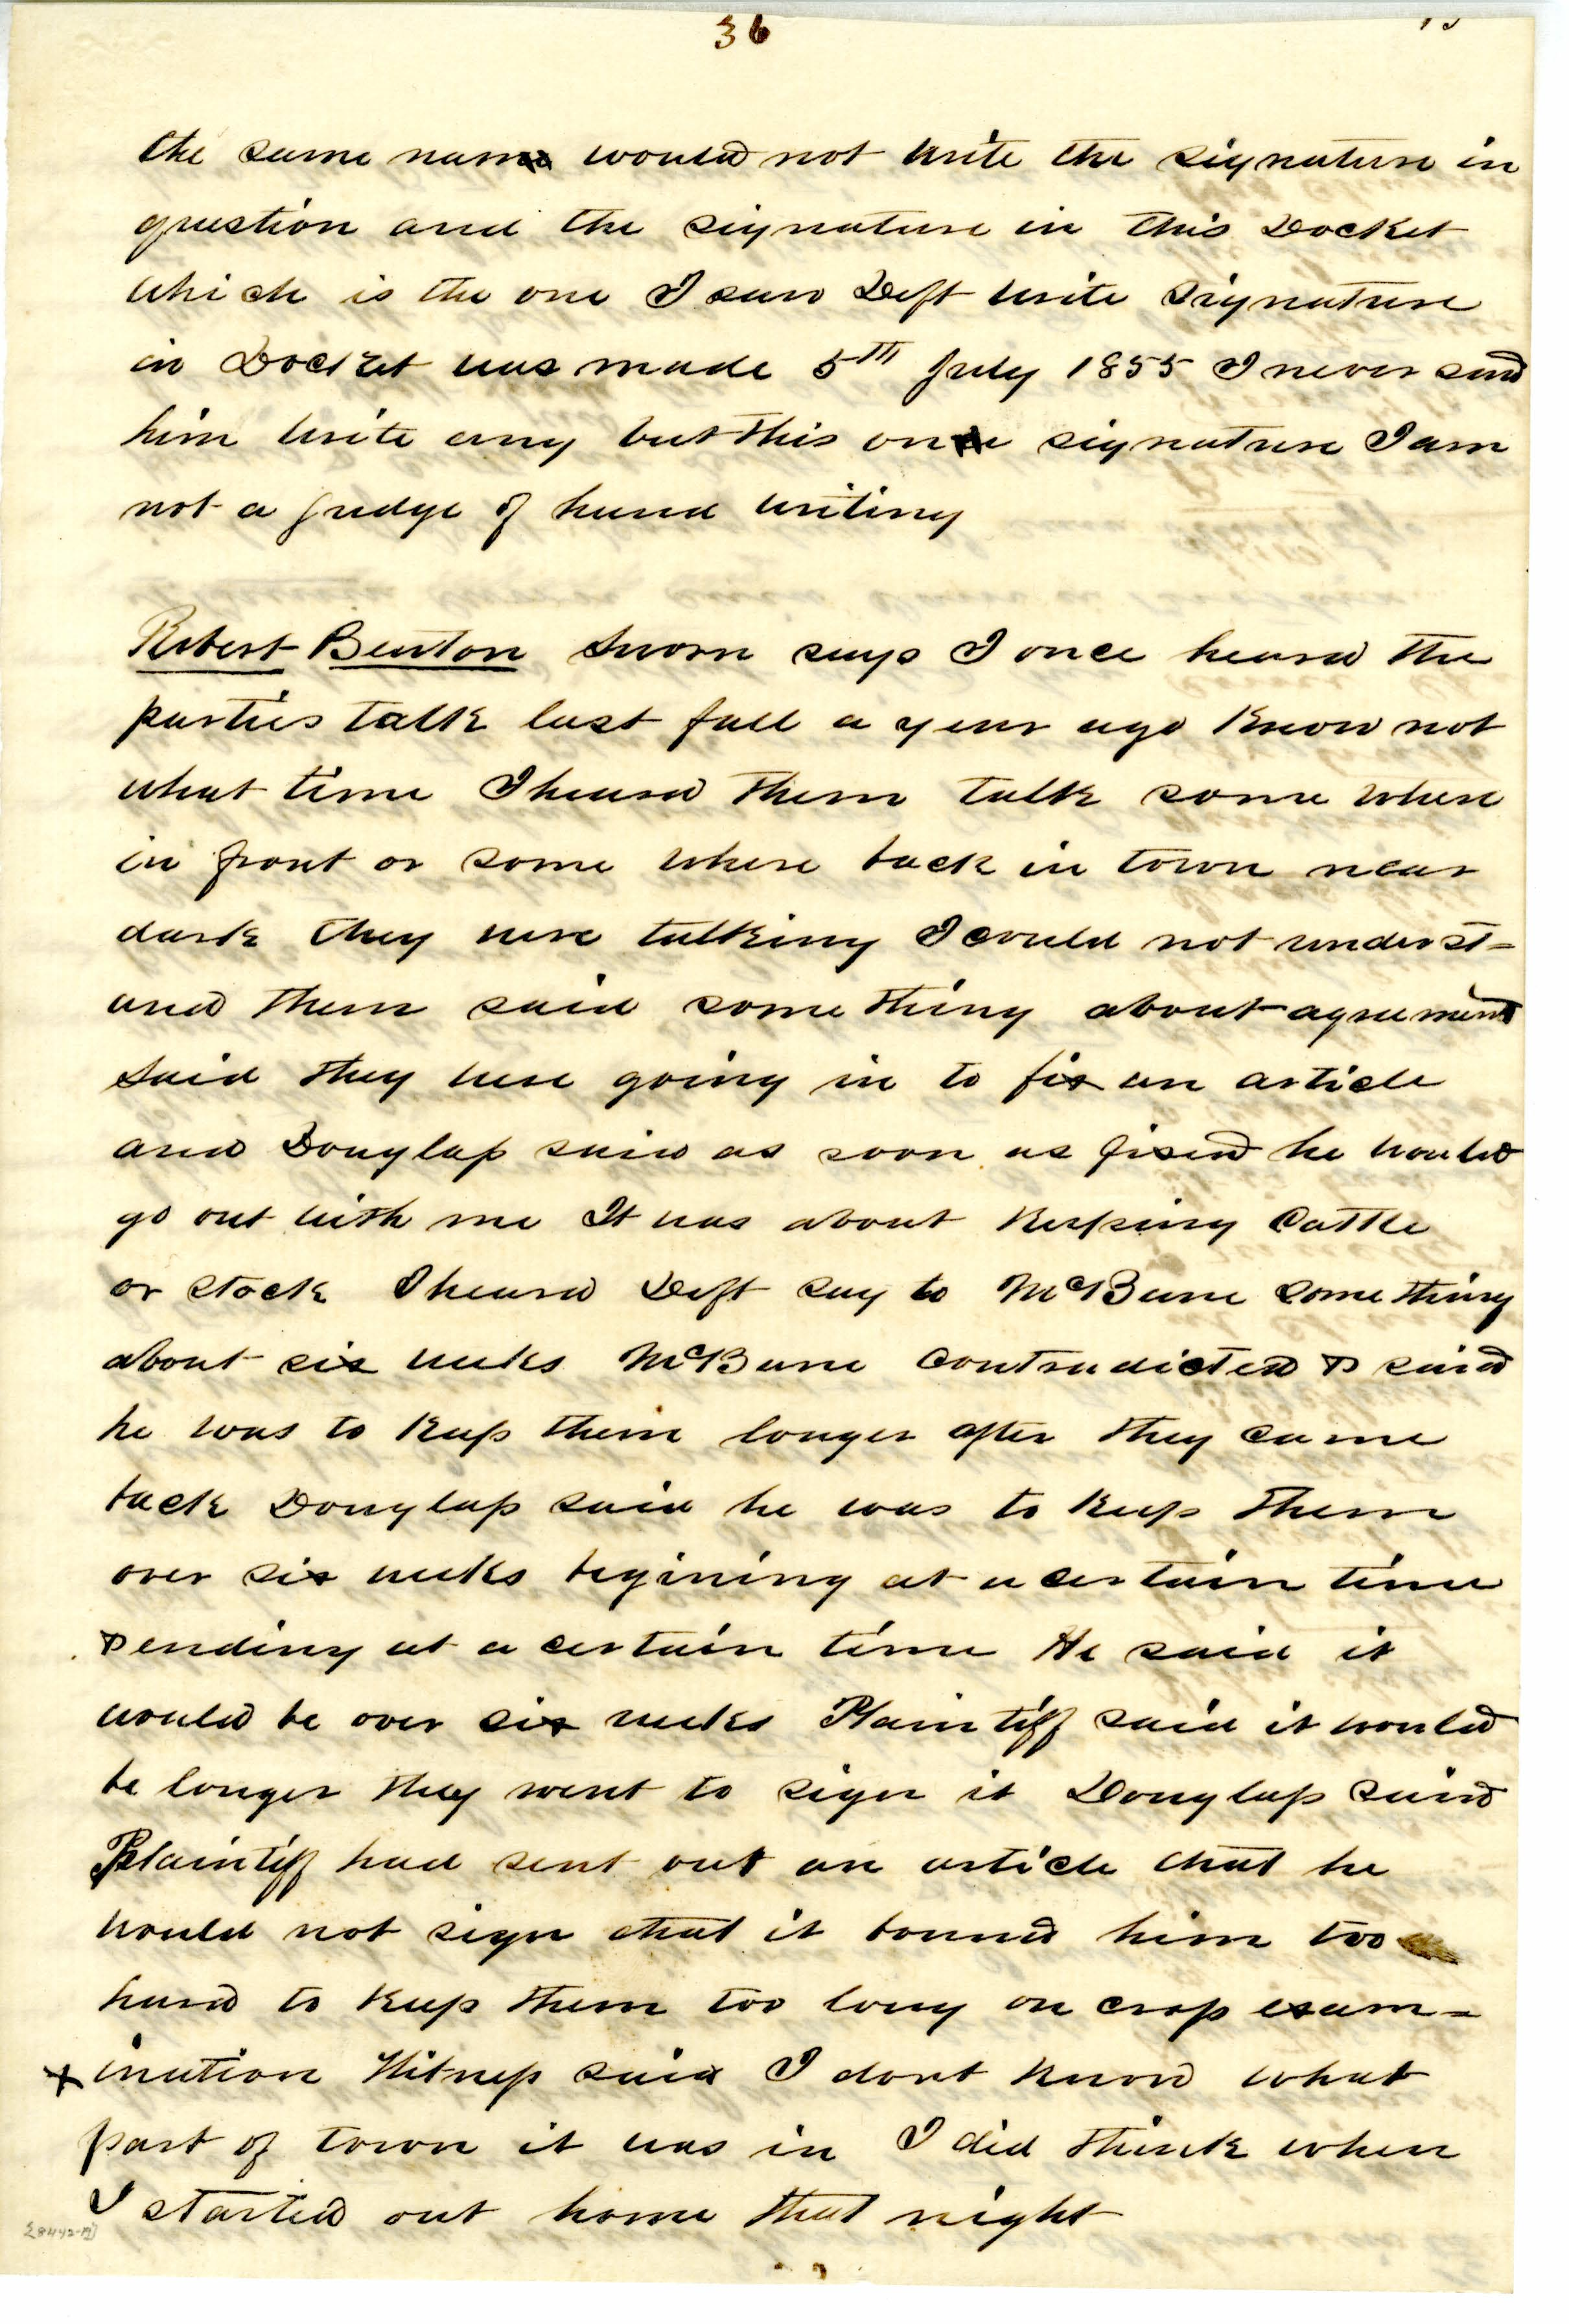 36
the same name would not write the signature in
question and the signature in this Docket
which is the one I saw Deft write Signature
in Docket was made 5th July 1855 I never saw
him write any but this one signature I am
not a judge of hand writing
Robert Benton Sworn says I once heard the
parties talk last fall a year ago Know not
what time I heard them talk some where
in front or some where back in town near
dark they were talking I could not underst=
and them said some thing about agreement
said they were going in to fix an article
and Douglass said as soon as fixed he would
go out with me It was about Keeping Cattle
or stock I heard Deft say to McBane Some thing
about six weeks McBane Contradicted & said
he was to Keep them longer after they came
back Douglass said he was to Keep them
over six weeks begining at a certain time
& ending at a certain time He said it
would be over six weeks Plaintiff said it would
be longer they went to sign it Douglass said
Plaintiff had sent out an article that he
would not sign that it bound him too
hard to Keep them too long on crop exam=
ination Witness said I dont Know what
part of town it was in I did think when
I started out home that night